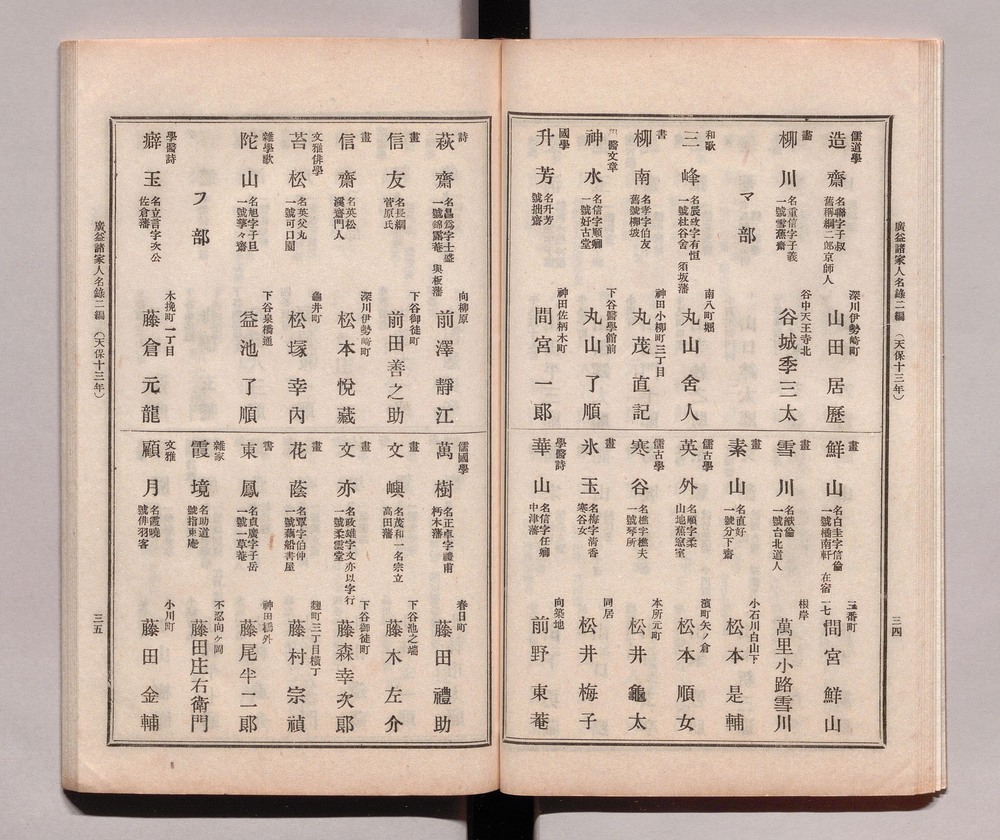 廣益諸家人名錄二編 (天保十三年)
三四
儒道學
造齋
名聯字子叔
舊稱綱二郎京師人
深川伊勢崎町
山田居歷
畫
柳川
名重信字子義
一號雪蕉齋
谷中天王寺北
谷城季三太
マ部
和歌
三峰
名展改字有恒
一號杜谷舍
須坂藩
南八町堀
丸山舍人
書
柳南
名孝字伯友
舊號柳坡
神田小柳町三丁目
丸茂直記
醫文章
神水
名信字順卿
一號好古堂
下谷醫學館前
丸山了順
國學
升芳
名升芳
號拙齋
神田佐柄木町
間宮一郎
畫
鮮山
名白圭字信倫
一號橘南軒
在宿
一七
三番町
間宮鮮山
畫
雪川
一號台北道人
根岸
萬里小路雪川
畫
素山
名直好
一號分下齋
小石川白山下
松本是輔
儒古學
英外
名順字柔
山地蕉窓室
濱町矢ノ倉
松本順女
儒古學
寒谷
名樵字樵夫
一號琴所
本所元町
松井龜太
畫
氷玉
名梅字淸香
寒谷女
同居
松井梅子
學醫詩
華山
名信字任卿
中津藩
向築地
前野東菴
詩
萩齋
名昌爲字士盛
一號錦露菴
與板藩
向柳原
前澤靜江
畫
信友
名長綱
菅原氏
下谷御徒町
前田善之助
畫
信齋
名英松
溪齋門人
深川伊勢崎町
松本悅藏
文雅俳學
苔松
名英父丸
一號可口園
龜井町
松塚幸內
雜學歌
陀山
名旭字子旦
一號夢々齋
下谷泉橋通
益池了順
フ部
學醫詩
癖玉
名立言字次公
佐倉藩
木挽町一丁目
藤倉元龍
儒國學
萬樹
名正卓字禮甫
朽木藩
春日町
藤田禮助
畫
文嶼
名茂和一名宗立
高田藩
下谷池之端
藤木左介
畫
文亦
名政雄字文亦以字行
一號柔雲堂
下谷御徒町
藤森幸次郎
畫
花蔭
名覃字伯仲
一號藕船書屋
麹町三丁目橫丁
藤村宗禎
書
東鳳
名貞廣字子岳
一號一草菴
神田橋外
藤尾半二郎
雜家
霞境
名助道
號指東庵
不忍向ヶ岡
藤田庄右衛門
文雅
顧月
名霞曉
號俳羽客
小川町
藤田金輔
廣益諸家人名錄二編 (天保十三年)
三五